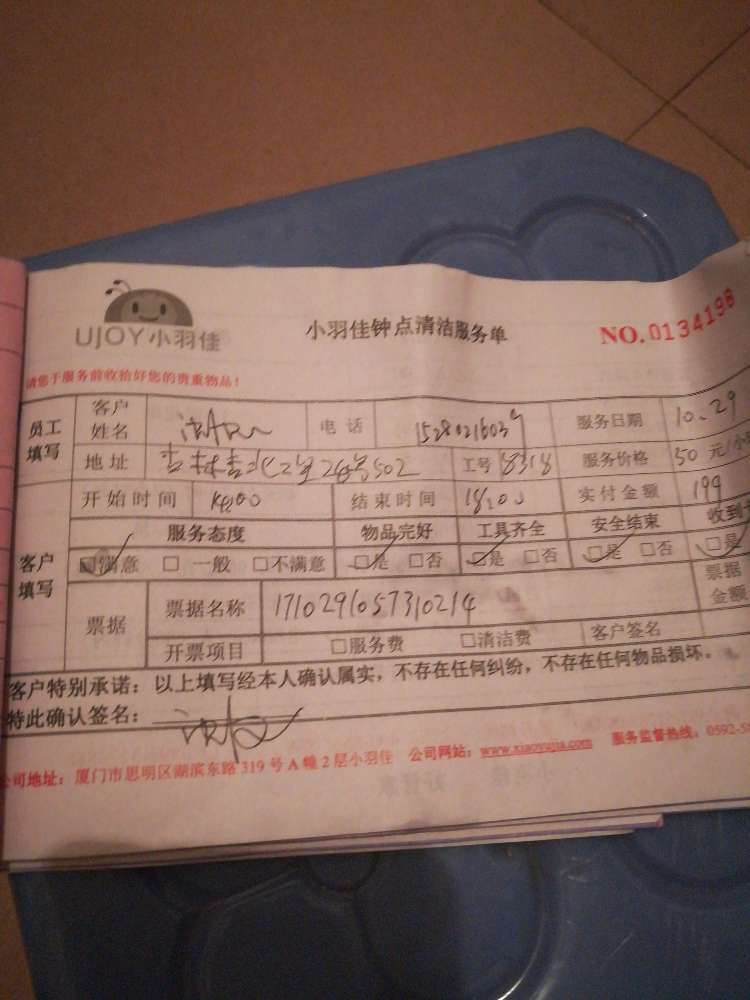 UJOY小羽佳
小羽佳钟点清洁服务单
NO.0134198
请您于服务前收拾好您的贵重物品！
员工填写 客户姓名 电话 15280216039 服务日期 10.29
地址 2号502 工号 8318 服务价格 50 元/小
客户填写 开始时间 结束时间 18:00 实付金额 199
服务态度 物品完好 工具齐全 安全结束 收到
满意 □ 一般 □不满意 □是 □否 □是 □否 □是 □否 □是
票据 票据名称 1710291057310214 票据金额
开票项目 □服务费 □清洁费 客户签名
客户特别承诺：以上填写经本人确认属实，不存在任何纠纷，不存在任何物品损坏。
特此确认签名：
公司地址：厦门市思明区湖滨东路 319 号 A 幢 2 层小羽佳 公司网站：www.xiaoyujia.com 服务监督热线：0592-5